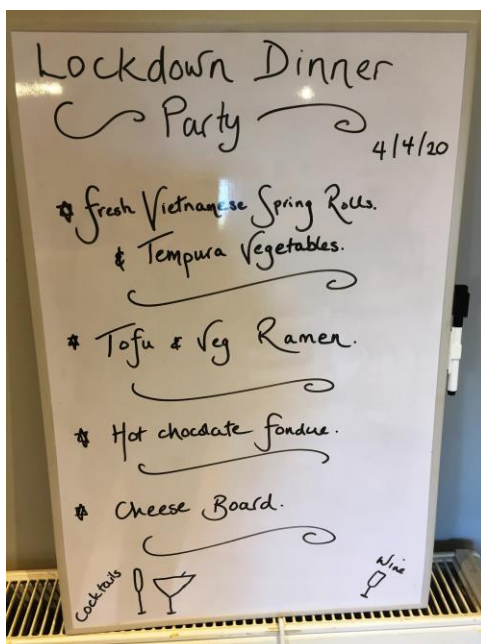 Lockdown Dinner
Party
4/4/20
Fresh Vietnamese Spring Rolls.
& Tempura Vegetables.
Tofu & Veg Ramen.
Hot chocolate fondue.
Cheese Board.
Cocktails
Wine